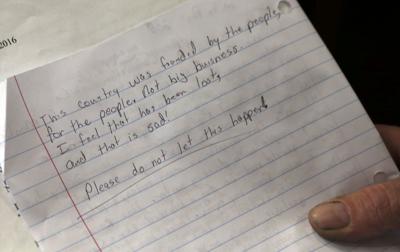 2016
This country was founded by the people,
for the people. Not big business.
I feel that has been lost,
and that is sad!
Please do not let this happen!